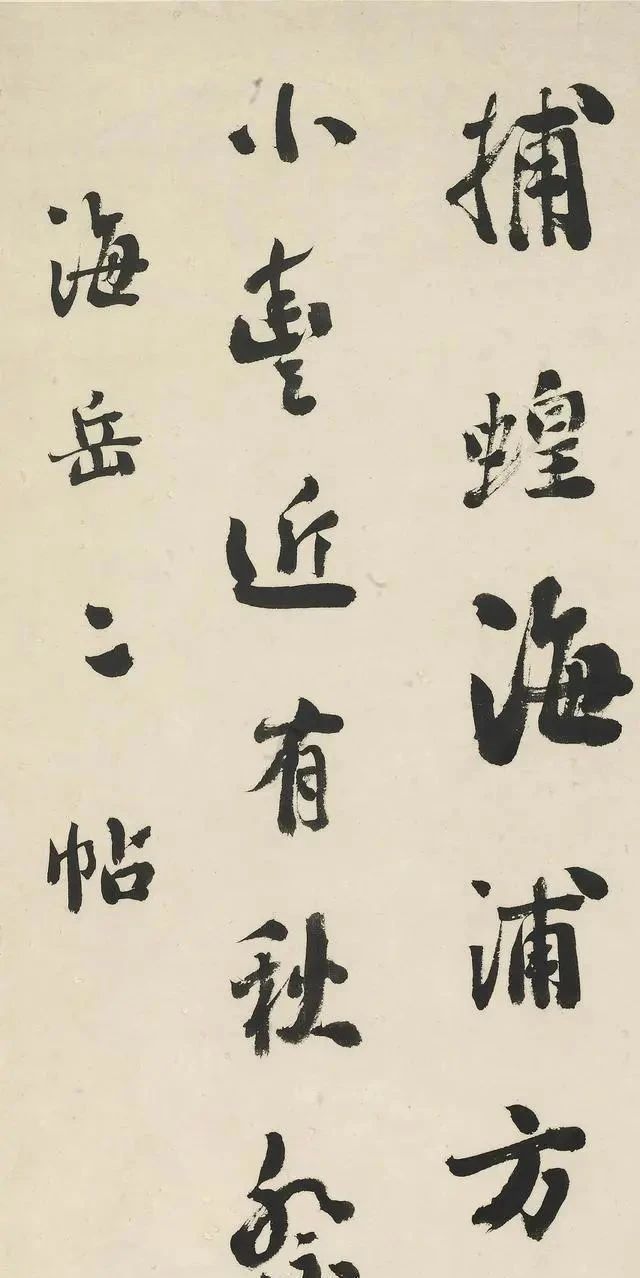 捕蝗海浦方
小近有秋
海岳二帖